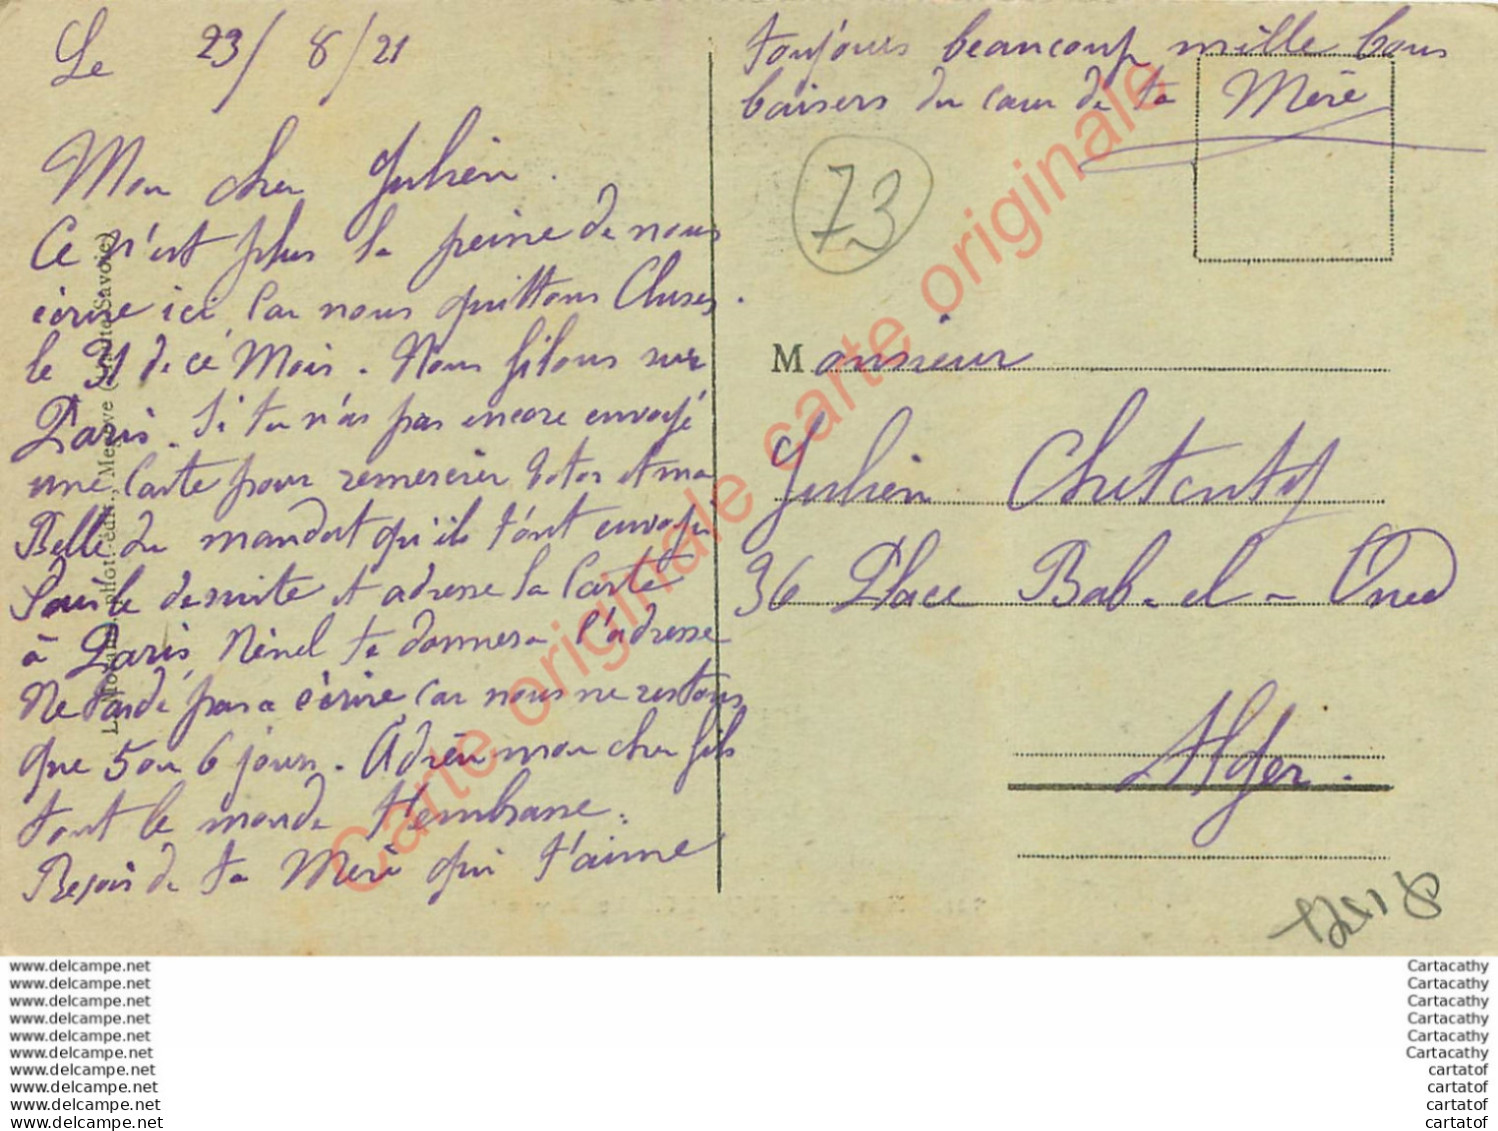 Le 23/8/21
Mon cher Julien.
Ce n'est plus la peine de nous
écrire ici car nous quittons Cluses.
le 31 de cé Mois. Nous filons sur
Paris. Si tu n'as pas encore envoyé
une Carte pour remercier et ma
Belle du mandat qu'ils t'ont envoyé
de suite et adresse la Carte
à Paris, Ninel te donnera l'adresse
Ne tarde pas a écrire car nous ne restons
que 5 ou 6 jours. Adieu mon cher fils
tout le monde t'embrasse.
Reçois de ta Mère qui t'aime
toujours beaucoup mille bons
baisers du cœur de ta Mère
73
Monsieur
Julien
36 Place Bab-el-Oued
Alger.
phot.-édit., Megève (Haute-Savoie)
Carte originale carte originale carte originale
www.delcampe.net
www.delcampe.net
www.delcampe.net
www.delcampe.net
www.delcampe.net
www.delcampe.net
www.delcampe.net
www.delcampe.net
www.delcampe.net
www.delcampe.net
Cartacathy
Cartacathy
Cartacathy
Cartacathy
Cartacathy
Cartacathy
cartatof
cartatof
cartatof
cartatof